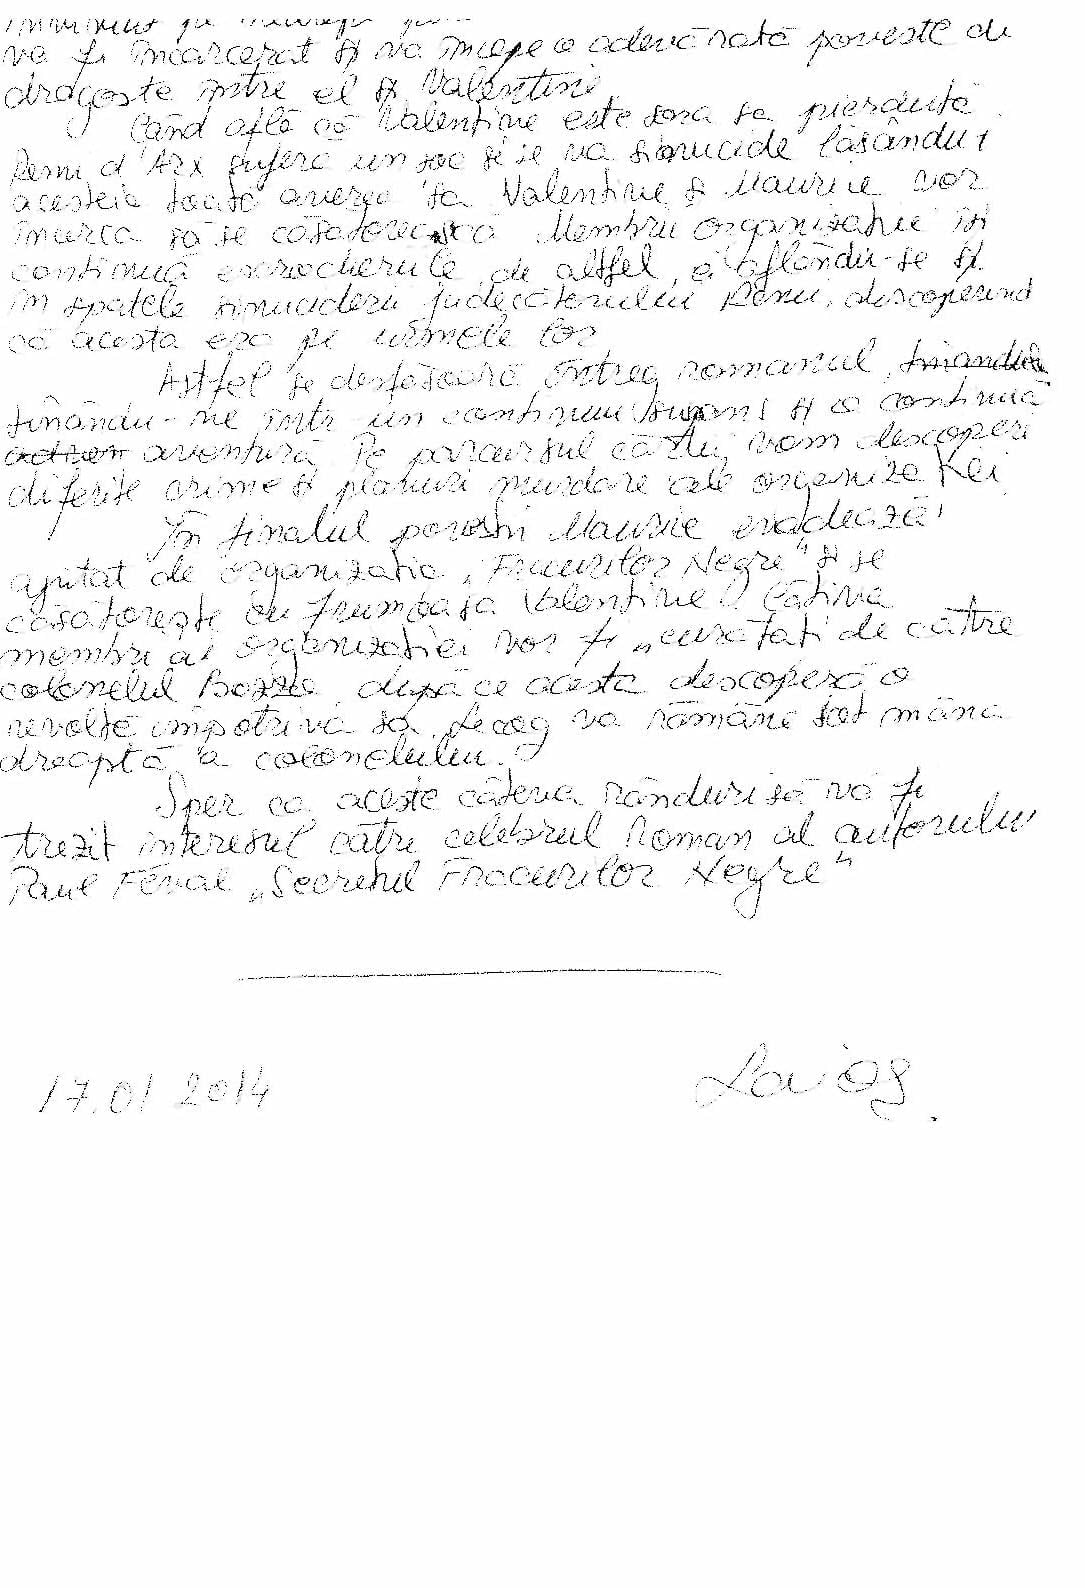 va fi încarcerat și va începe o adevărată poveste de
dragoste între el și Valentine
Când află că Valentine este sora sa pierdută
Remi d'Arx suferă un șoc și se va sinucide lăsându-i
acesteia toată averea sa Valentine și Maurice vor
încerca să se căsătorească Membrii organizației își
continuă escrocheriile, de altfel, ei aflându-se și
în spatele sinuciderii judecătorului Remi, descoperind
că acesta era pe urmele lor
Astfel se desfășoară întreg romanul, ținându-ne
ținându-ne într-un continuu suspans și o continuă
aventură Pe parcursul cărții, vom descoperi
diferite crime și planuri murdare ale organizației
În finalul povestii Maurice evadează,
ajutat de organizația „Fracurilor Negre" și se
căsătorește cu frumoasa Valentine. Câțiva
membri ai organizației vor fi „curățați de către
colonelul Bozzo, după ce acesta descoperă o
revoltă împotriva sa, Lecoq va rămâne tot mâna
dreaptă a colonelului.
Sper ca aceste câteva rânduri să vă fi
trezit interesul către celebrul roman al autorului
Paul Féval „Secretul Fracurilor Negre"
17.01 2014